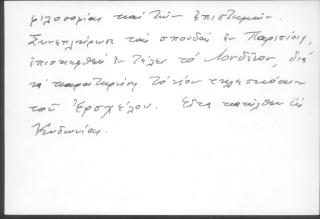 φιλοσοφίας καὶ τῶν ἐπιστημῶν.
Συνεπλήρωσε τὰς σπουδὰς ἐν Παρισίοις,
ἐπισκεφθεὶς ἐν τέλει τὸ Λονδῖνον, διὰ
νὰ παρατηρήσῃ τὸ νέον τηλεσκόπιον
τοῦ Ἑρσχέλου. Εἶτα κατῆλθεν εἰς
Κυδωνίας.